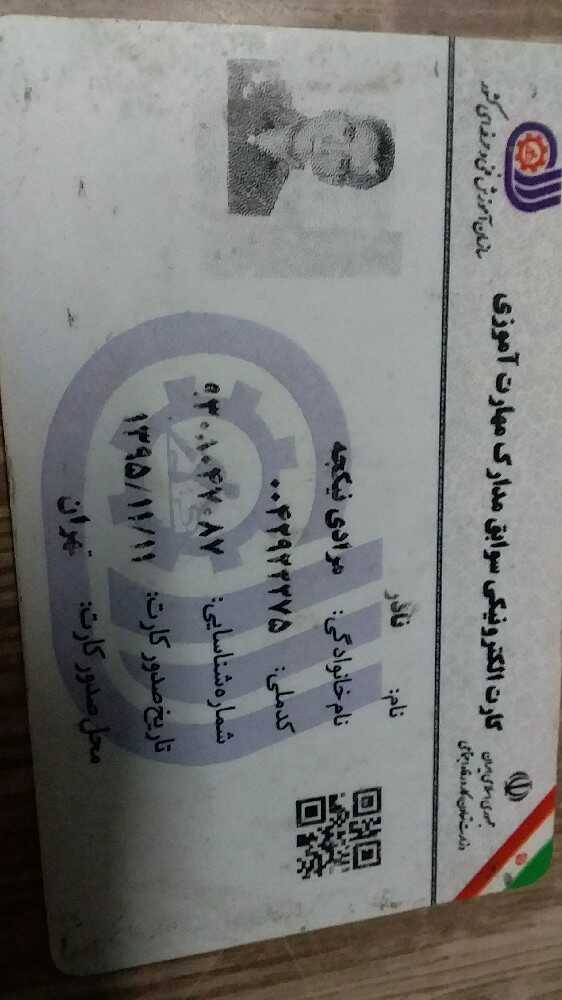 سازمان آموزش فنی و حرفه‌ای کشور
جمهوری اسلامی ایران
وزارت تعاون، کار و رفاه اجتماعی
کارت الکترونیکی سوابق مدارک مهارت آموزی
نام: نادر
نام خانوادگی: مرادی نیکجه
کد ملی: ۰۰۴۲۹۲۲۲۷۵
شماره شناسایی:
تاریخ صدور کارت: ۱۳۹۵/۱۱/۱۱
محل صدور کارت: تهران